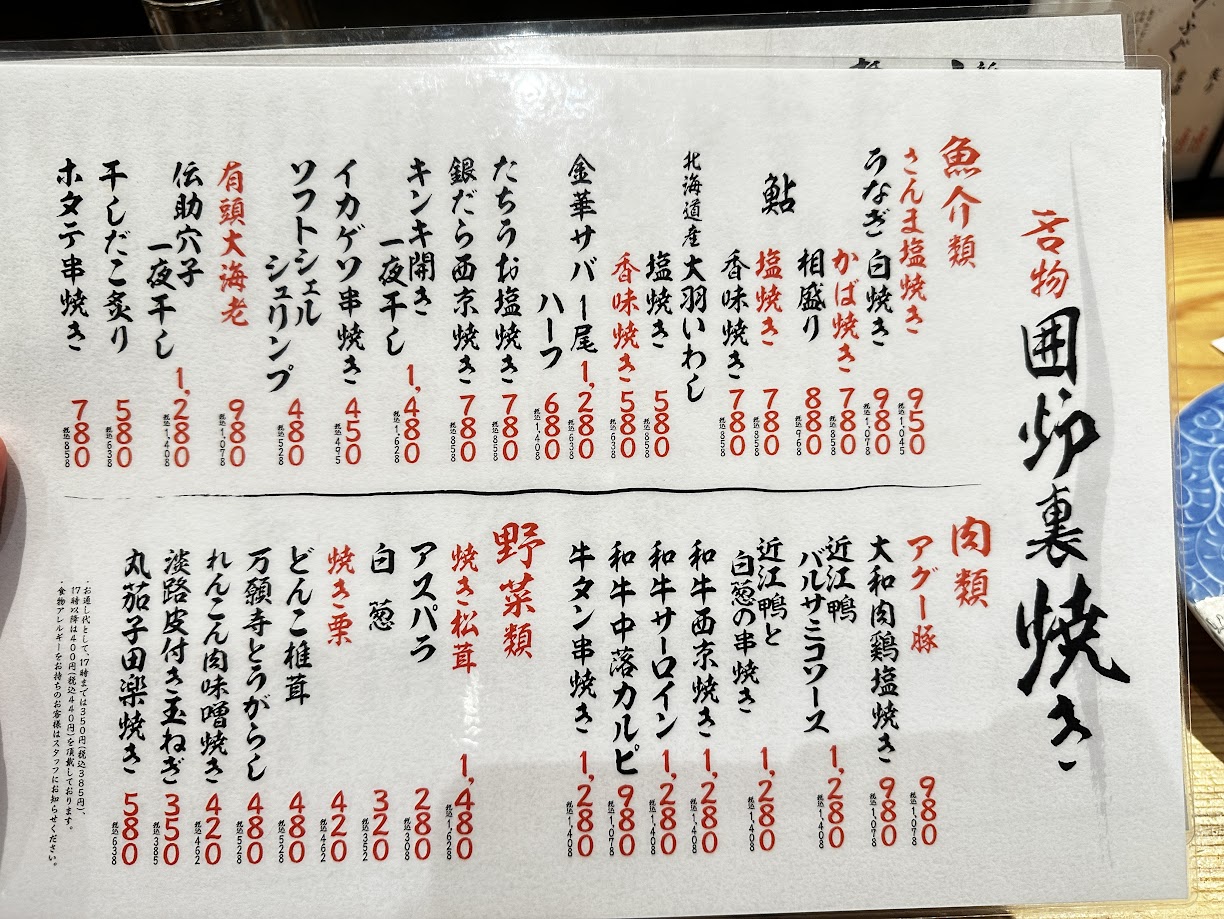 名物
囲炉裏焼き
魚介類
さんま塩焼き 950 税込1,045
うなぎ 白焼き 980 税込1,078
かば焼き 780 税込858
相盛り 880 税込968
鮎 塩焼き 780 税込858
香味焼き 780 税込858
北海道産大羽いわし
塩焼き 580 税込858
香味焼き 580 税込638
金華サバ一尾 1,280 税込638
ハーフ 680 税込1,408
たちうお塩焼き 780 税込858
銀だら西京焼き 780 税込858
キンキ開き
一夜干し 1,480 税込1,628
イカゲソ串焼き 450 税込495
ソフトシェル
シュリンプ 480 税込528
有頭大海老 980 税込1,078
伝助穴子
一夜干し 1,280 税込1,408
干しだこ炙り 580 税込638
ホタテ串焼き 780 税込858
肉類
アグー豚 980 税込1,078
大和肉鶏塩焼き 980 税込1,078
近江鴨
バルサミコソース 1,280 税込1,408
近江鴨と
白葱の串焼き 1,280 税込1,408
和牛西京焼き 1,280 税込1,408
和牛サーロイン 1,280 税込1,408
和牛中落カルビ 980 税込1,078
牛タン串焼き 1,280 税込1,408
野菜類
焼き松茸 1,480 税込1,628
アスパラ 280 税込308
白葱 320 税込352
焼き栗 420 税込462
どんこ椎茸 480 税込528
万願寺とうがらし 480 税込528
れんこん肉味噌焼き 420 税込462
淡路皮付き玉ねぎ 350 税込385
丸茄子田楽焼き 580 税込638
・お通し代として、17時までは350円(税込385円)、
17時以降は400円(税込440円)を頂戴しております。
・食物アレルギーをお持ちのお客様はスタッフにお知らせください。